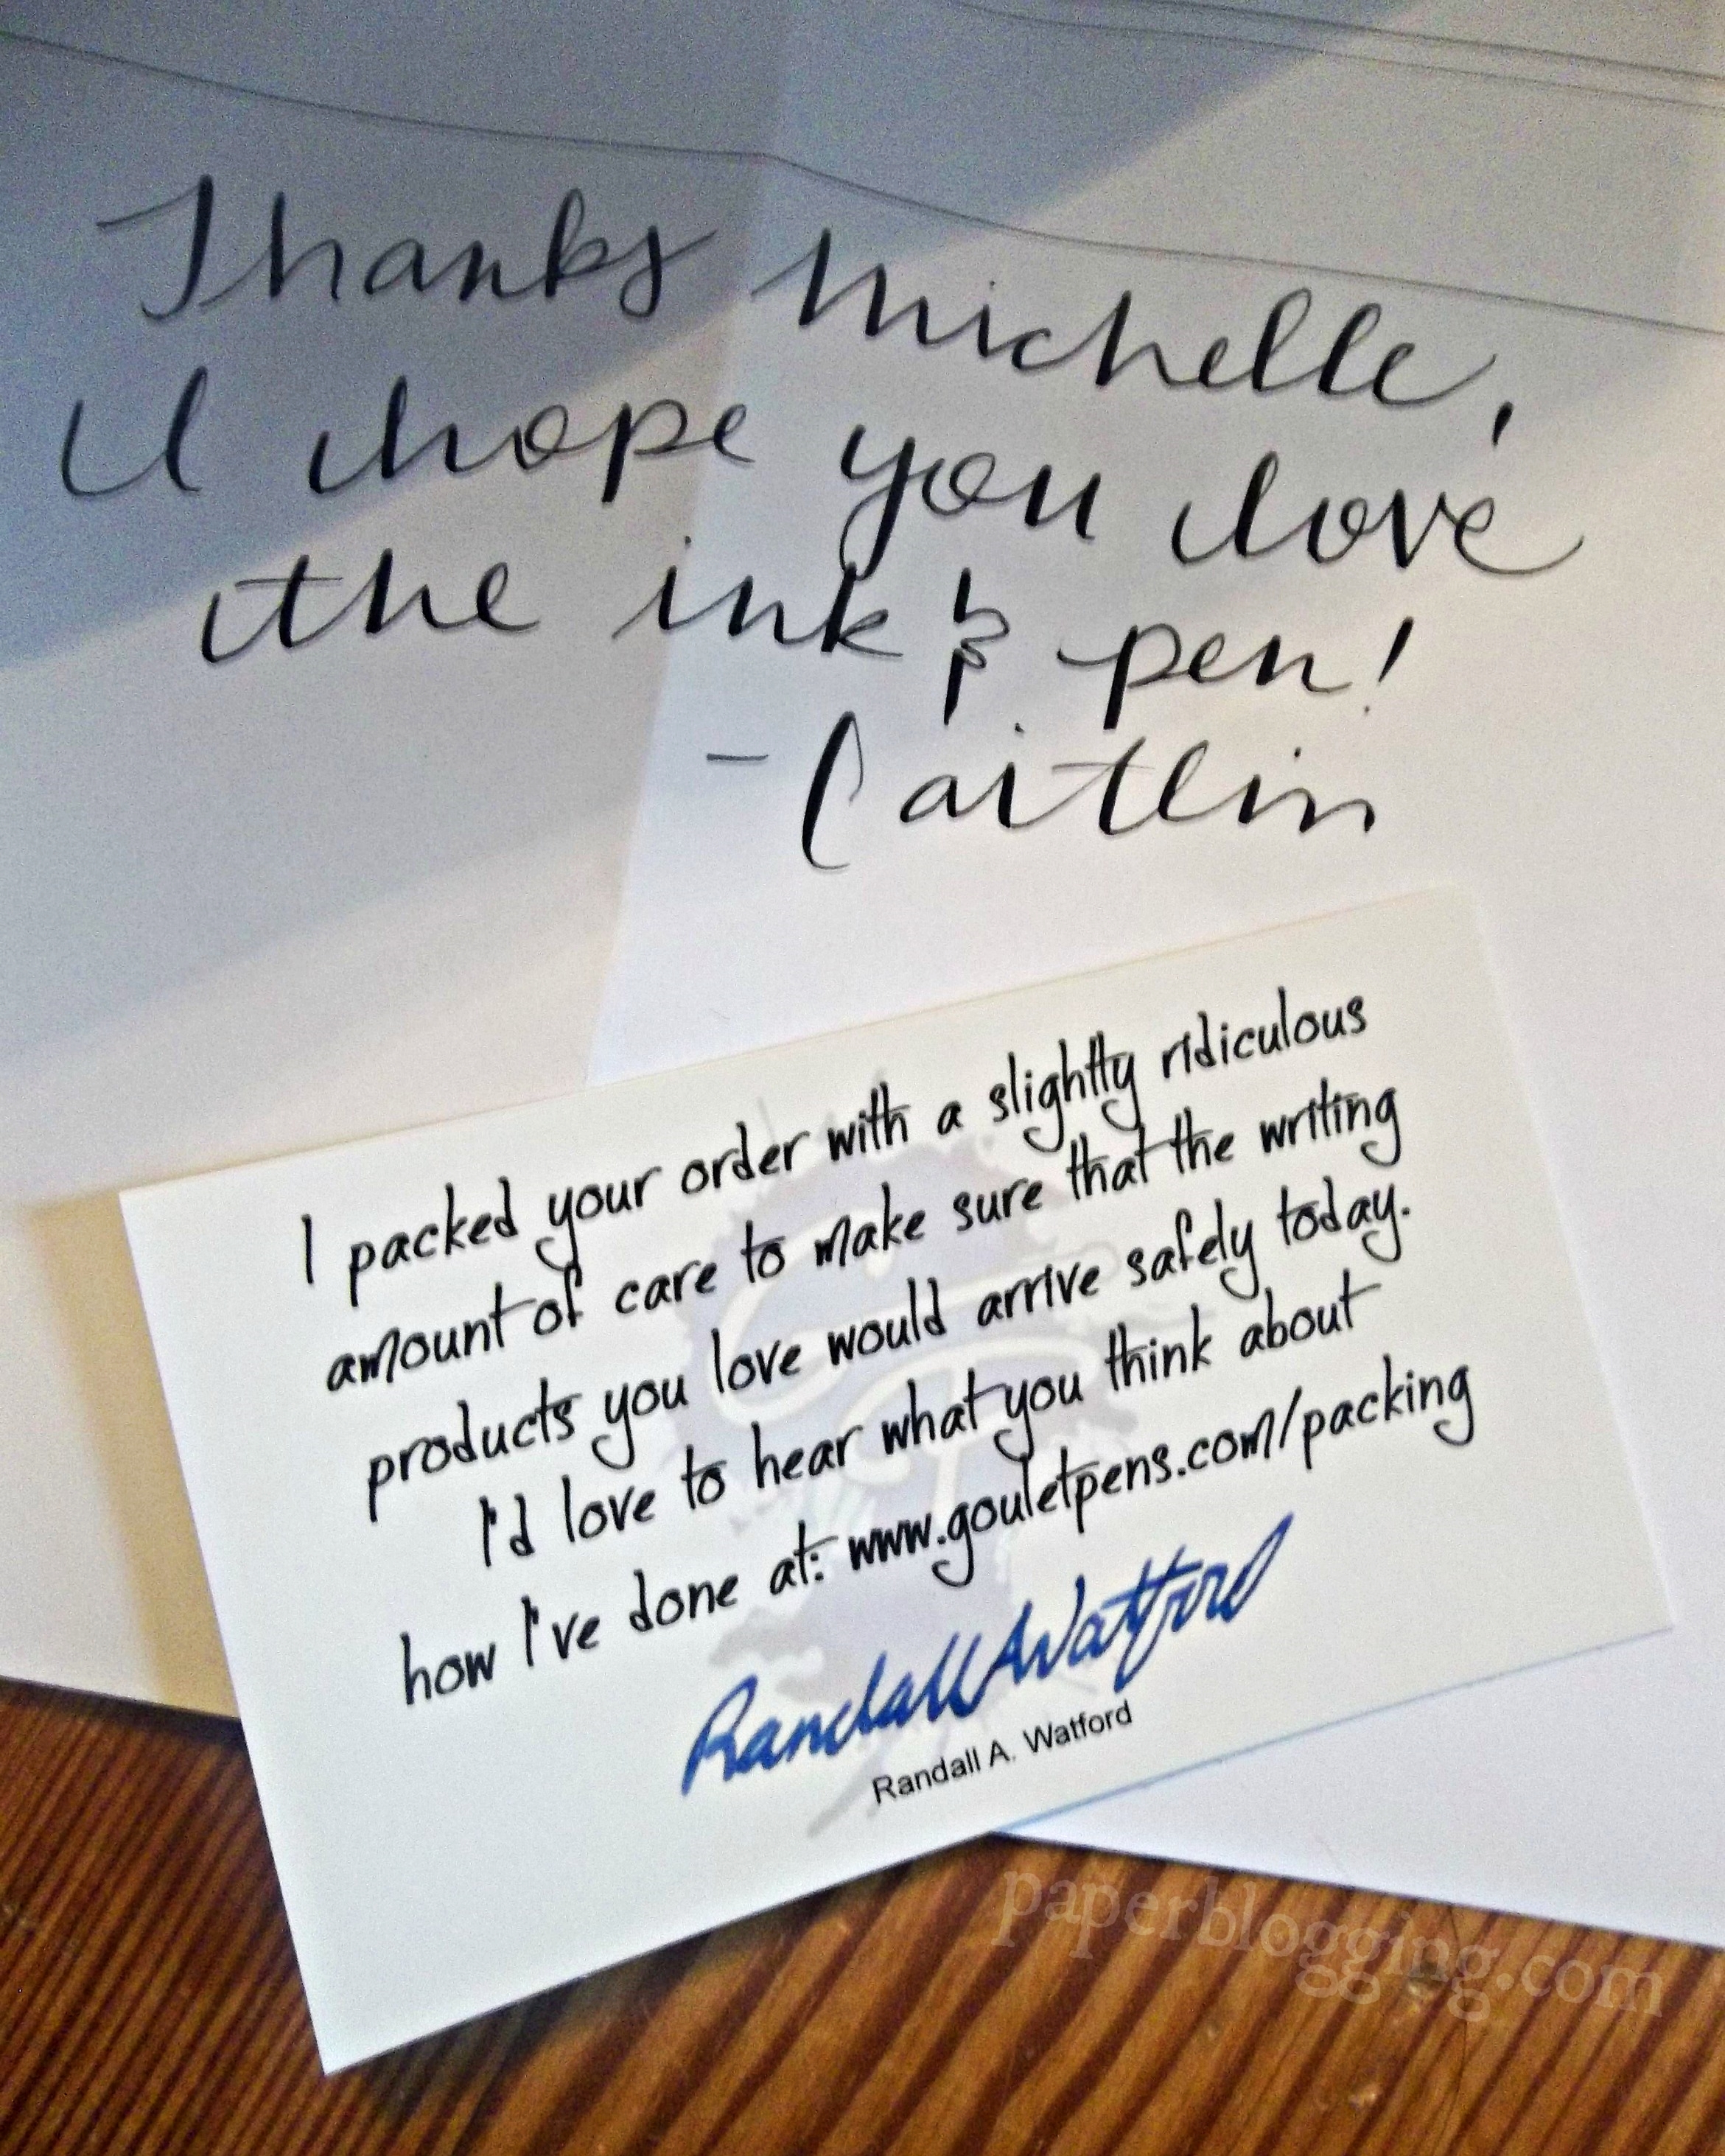 Thanks Michelle,
I hope you love
the ink & pen!
- Caitlin
I packed your order with a slightly ridiculous
amount of care to make sure that the writing
products you love would arrive safely today.
I'd love to hear what you think about
how I've done at: www.gouletpens.com/packing
Randall A Watford
Randall A. Watford
paperblogging.com